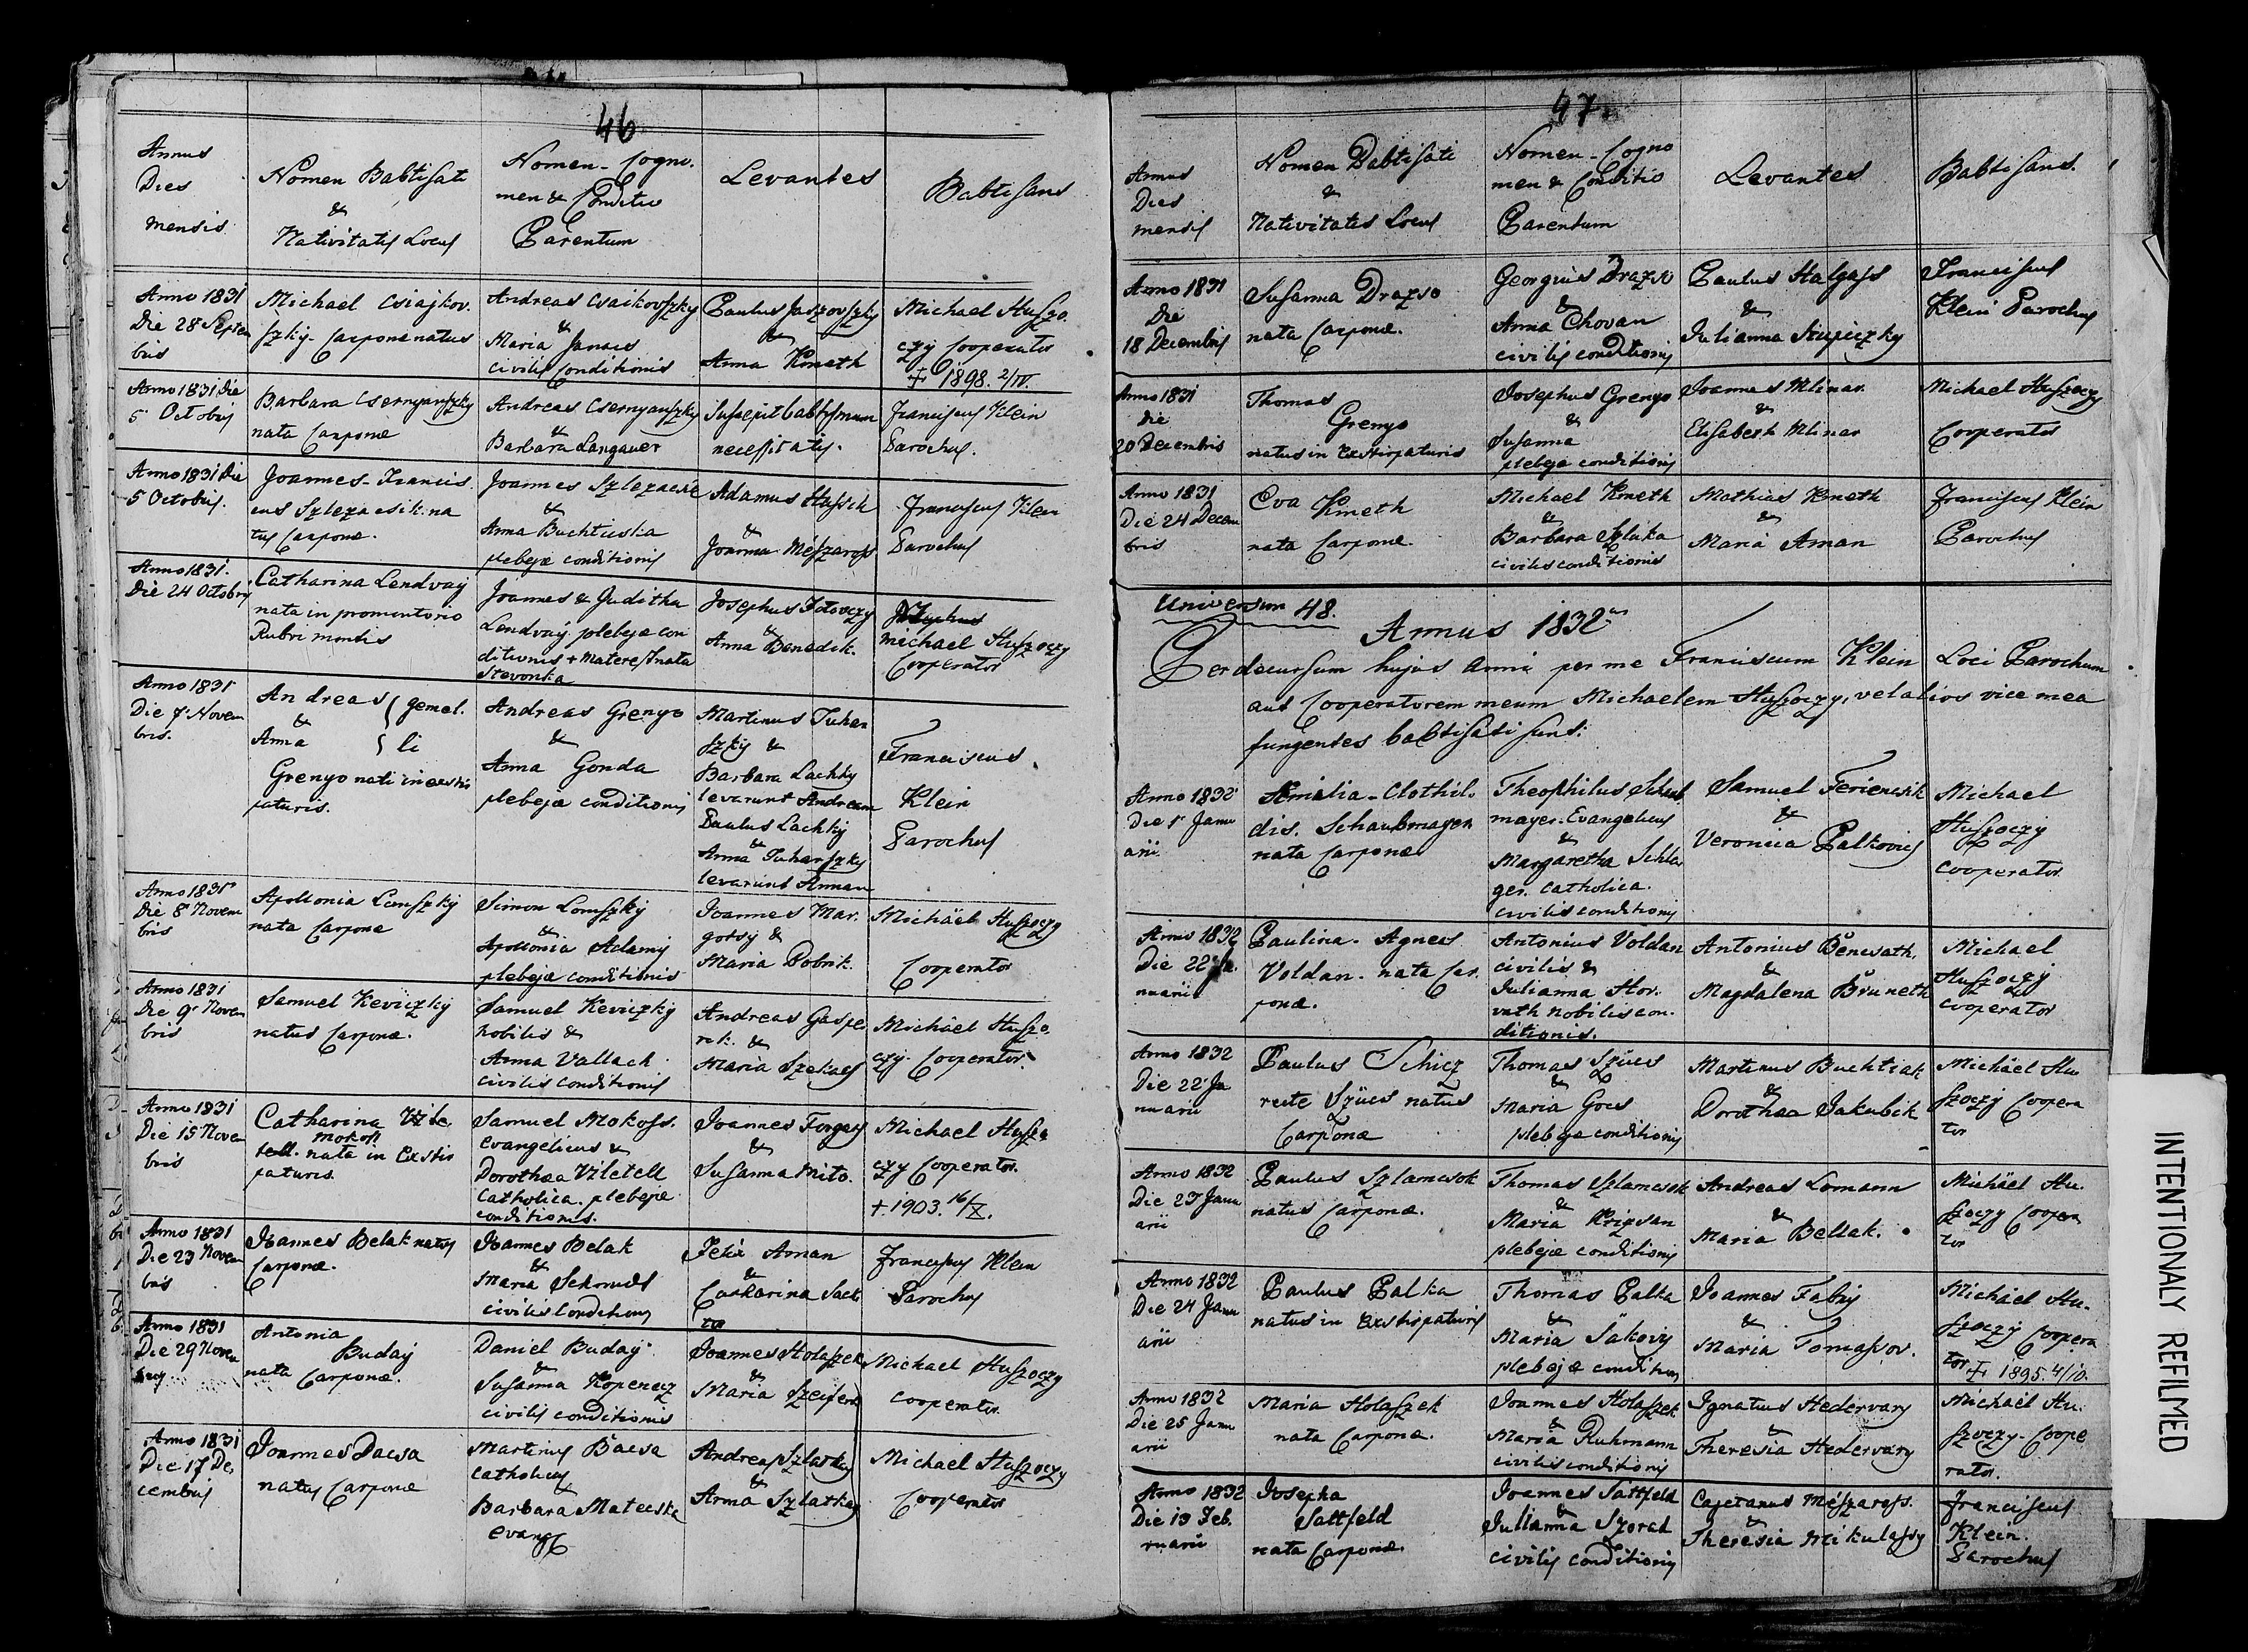 46
Annus
Dies
mensis
Nomen Babtisati
&
Nativitatis Locus
Nomen - Cogno.
men & Conditio
Parentum
Levantes
Babtisans
Anno 1831
Die 28 Septem
bris
Michael Csiajkov.
szky. Carponae natus
Andreas Csaikovszky
&
Maria Janses
civilis conditionis
Paulus Jaszovszky
&
Anna Kmeth
Michael Huszo.
czy Cooperator
+ 1898. 2/IV.
Anno 1831 Die
5 Octobris
Barbara Csernyanszky
nata Carponae
Andreas Csernyanszky
&
Barbara Langauer
Suscepit babtismum
necessitatis.
Franciscus Klein
Parochus.
Anno 1831 Die
5 Octobris.
Joannes - Francis.
cus Szlezacsik. na
tus Carponae.
Joannes Szlezacsik
&
Anna Buchtuska
plebejae conditionis
Adamus Hussik
&
Joanna Mészaross
Franciscus Klein
Parochus
Anno 1831.
Die 24 Octobris
Catharina Lendvay
nata in promontorio
Rubri montis
Joannes & Juditha
Lendvay. plebejae con
ditionis + Matere / nata
Stevonka
Josephus Totovczy
&
Anna Benedik.
Michael Huszoczy
Cooperator
Anno 1831
Die 7 Novem
bris.
Andreas } gemel.
&
Anna } li
Grenyo nati in exstir
paturis.
Andreas Grenyo
&
Anna Gonda
plebejae conditionis
Martinus Tuhan
szky &
Barbara Lachky
levarunt Andream
Paulus Lachky
&
Anna Tuhanszky
levarunt Annam
Franciscus
Klein
Parochus
Anno 1831
Die 8 Novem
bris
Apollonia Lomszky
nata Carponae
Simon Lomszky
&
Apollonia Adamy
plebejae conditionis
Joannes Mar.
gotsy &
Maria Dobrik.
Michäel Huszoczy
Cooperator
Anno 1831
Die 9 Novem
bris
Samuel Keviczky
natus Carponae.
Samuel Keviczky
Nobilis &
Anna Vallach
civilis conditionis
Andreas Gaspe
rik. &
Maria Szekacs
Michäel Huszo.
czy. Cooperator.
Anno 1831
Die 15 Novem
bris
Catharina Vzle.
Mokoss
tell. nata in Exstir
paturis.
Samuel Mokoss.
evangelicus &
Dorothaea Vzletell
Catholica. plebejae
conditionis.
Joannes Forgacs
&
Susanna Mito.
Michael Huszo
czy Cooperator.
+ 1903. 16/X.
Anno 1831
Die 23 Novem
bris
Joannes Belak natus
Carponae.
Joannes Belak
&
Maria Schmidl
civilis conditionis
Felix Aman
&
Catharina Sack
Franciscus Klein
Parochus
Anno 1831
Die 29 Novem
bris
Antonia
Buday
nata Carponae.
Daniel Buday
&
Susanna Kopenecz
civilis conditionis
Joannes Holaszek
&
Maria Szeifert
Michael Huszoczy
cooperator.
Anno 1831
Die 17 De.
cembris
Joannes Dacsa
natus Carponae
Martinus Bacsa
catholicus
&
Barbara Matecska
evang
Andreas Szlatky
&
Anna Szlatky
Michael Huszoczy
Cooperator
47.
Annus
Dies
mensis
Nomen Babtisati
&
Nativitatis Locus
Nomen - Cogno
men & Conditio
Parentum
Levantes
Babtisans.
Anno 1831
Die
18 Decembris
Susanna Drazso
nata Carponae.
Georgius Drazso
&
Anna Chovan
civilis conditionis
Paulus Halgass
&
Julianna Krupiczky
Franciscus
Klein Parochus
Anno 1831
Die
20 Decembris
Thomas
Grenyo
natus in Exstirpaturis
Josephus Grenyo
&
Susanna
plebeje conditionis
Joannes Mlinar
&
Elisabeth Mlinar
Michael Huszoczy
Cooperator
Anno 1831
Die 24 Decem
bris
Eva Kmeth
nata Carponae.
Michael Kmeth
&
Barbara Szluka
civilis conditionis
Mathias Kmeth
&
Maria Aman
Franciscus Klein
Parochus
Universum 48.
Annus 1832us
Per decursum hujus anni per me Franciscum Klein Loci Parochum
aut Cooperatorem meum Michaelem Huszoczy, vel alios vice mea
fungentes babtisati sunt:
Anno 1832
Die 5 Janu
arii
Amalia - Clothil.
dis. Schaubmayer
nata Carponae
Theophilus Schaub
mayer. Evangelicus
&
Margaretha Schla
ger. catholica.
civilis conditionis
Samuel Feriencsik
&
Veronica Palkovics
Michael
Huszoczy
cooperator.
Anno 1832
Die 22 Ja.
nuarii
Paulina - Agnes
Voldan. nata Car.
ponae.
Antonius Voldan
civilis &
Julianna Hor.
vath nobilis con.
ditionis.
Antonius Benesath.
&
Magdalena Bruneth
Michael
Huszoczy
cooperator
Anno 1832
Die 22 Ja
nuarii
Paulus Schicz
recte Szücs natus
Carponae
Thomas Szücs
&
Maria Gocs
plebejae conditionis
Martinus Buchtiak
&
Dorothaea Jakubik
Michäel Hu.
szoczy Coopera
tor
Anno 1832
Die 23 Janu
arii
Paulus Szlamcsok
natus Carponae.
Thomas Szlamcsok
&
Maria Krizsan
plebejae conditionis
Andreas Lomann
&
Maria Bellak.
Michäel Hu.
szoczy Coopera
tor
Anno 1832
Die 24 Janu
arii
Paulus Palka
natus in Exstirpaturis
Thomas Palka
&
Maria Jakovis
plebejae condition
Joannes Fabry
&
Maria Tomassov.
Michäel Hu.
szoczy Coopera
tor + 1895. 4/10.
Anno 1832
Die 25 Janu
arii
Maria Holaszek
nata Carponae.
Joannes Holaszek
&
Maria Ruhmann
civilis conditionis
Ignatius Hedervary
&
Theresia Hedervary
Michaël Hu.
szoczy - Coope
rator.
Anno 1832
Die 13 Feb.
ruarii
Josepha
Sattfeld
nata Carponae.
Joannes Sattfeld
&
Julianna Szorad
civilis conditionis
Cajetanus Mészaross.
&
Theresia Mikulassy
Franciscus
Klein
Parochus
INTENTIONALY REFILMED